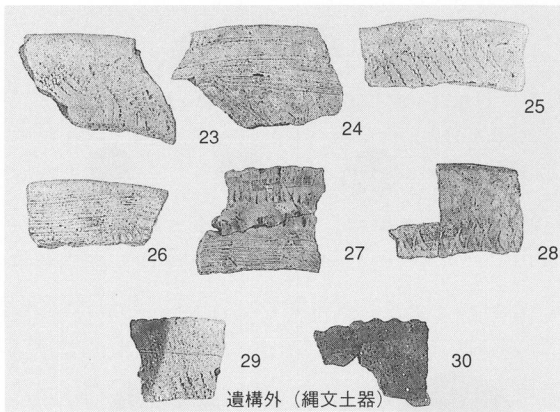 23
24
25
26
27
28
29
30
遺構外（縄文土器）